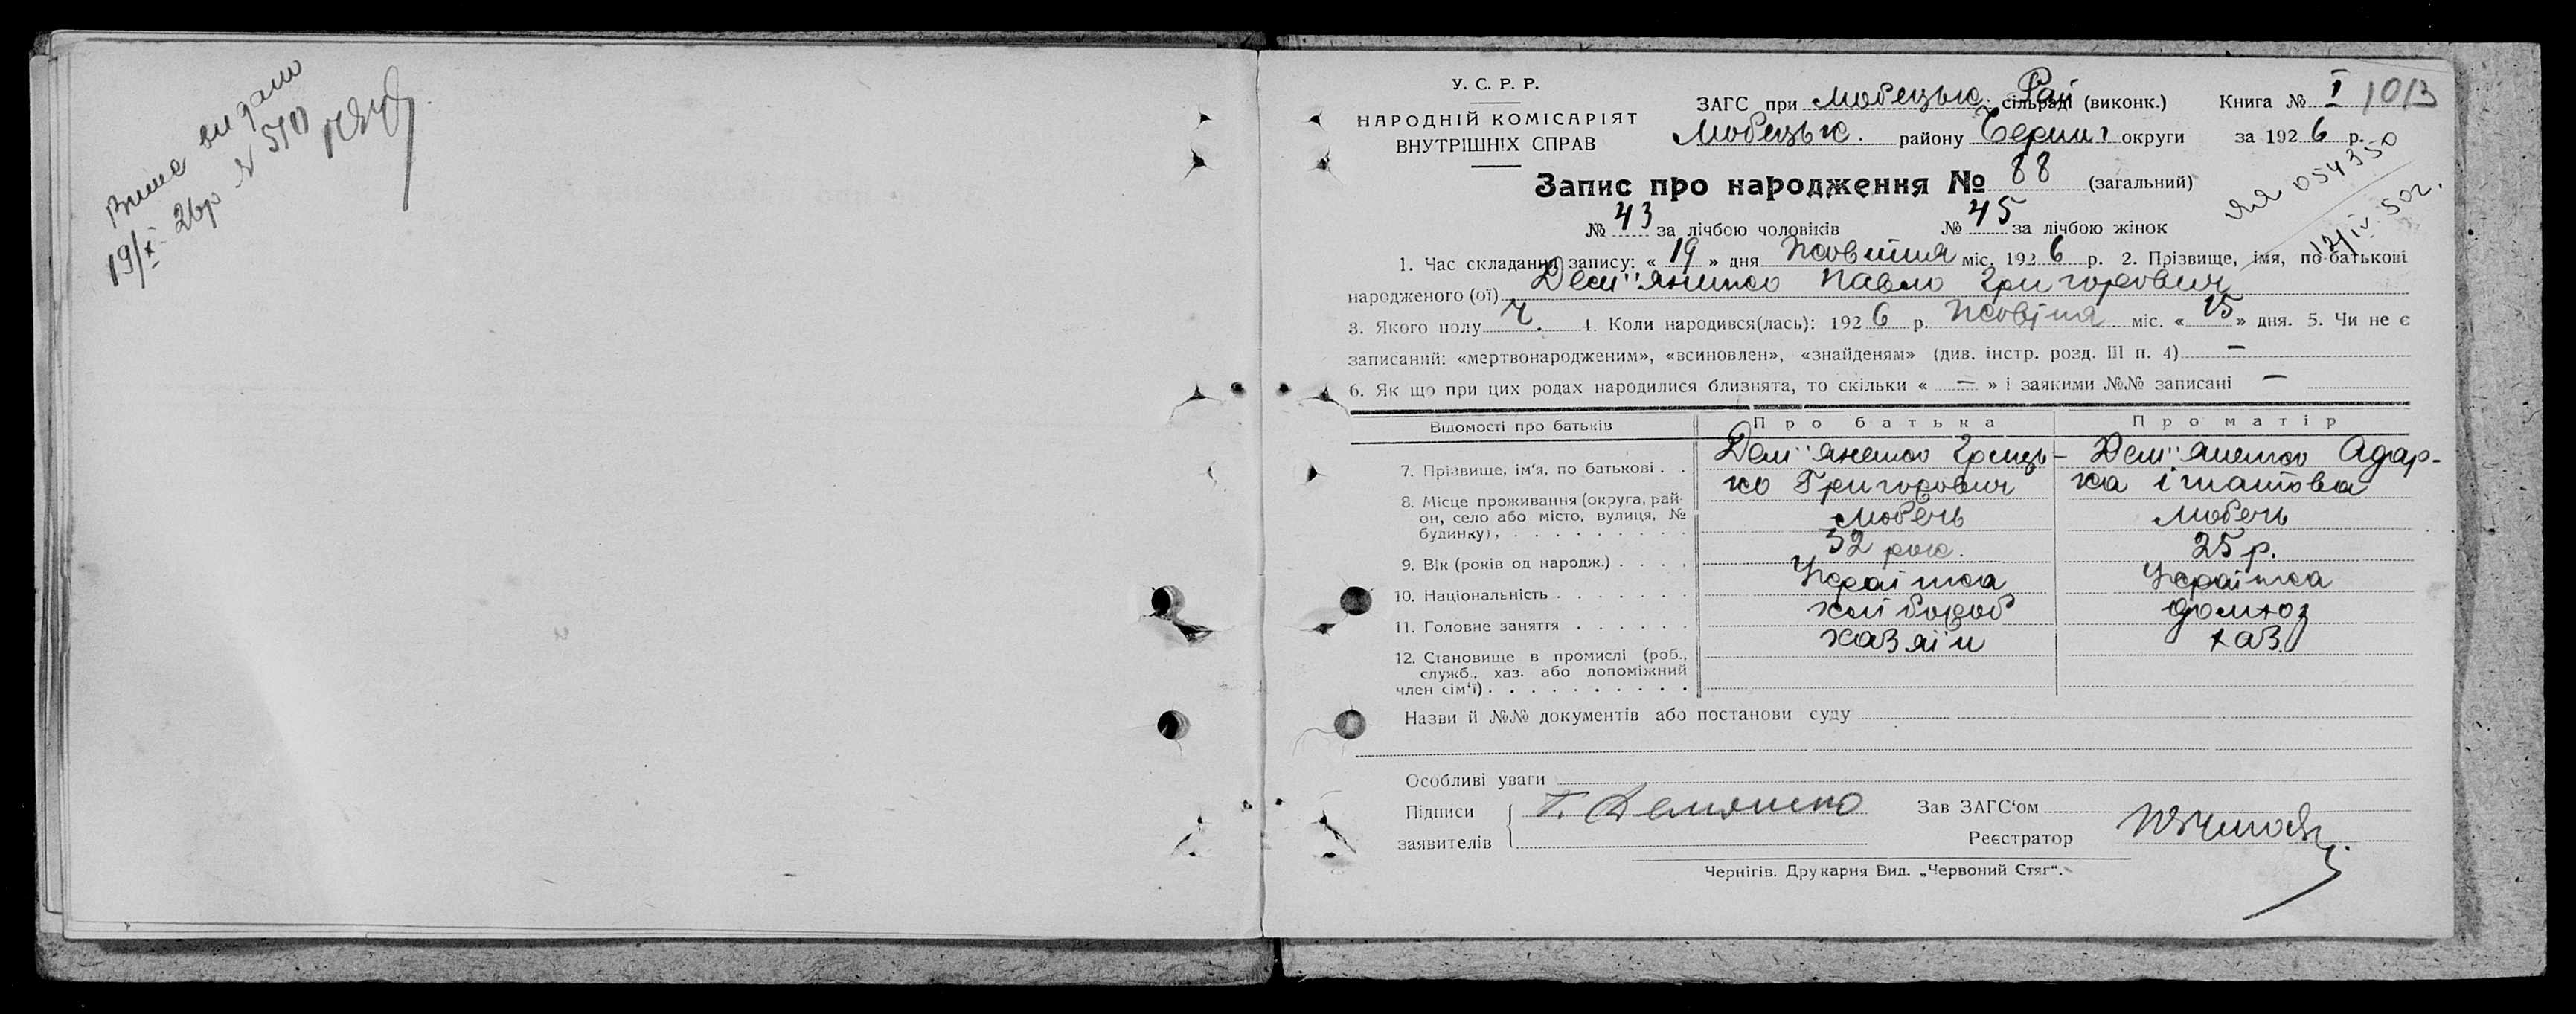 Випис видано
19/X 26р № 510
У. С. Р. Р.
НАРОДНІЙ КОМІСАРІЯТ
ВНУТРІШНІХ СПРАВ
ЗАГС при Любецьк. Рай сільраді (виконк.) Книга № I 1013
Любецьк. району Черниг округи за 1926 р.
Запис про народження № 88 (загальний)
№ 43 за лічбою чоловіків № 45 за лічбою жінок
054350
12/IV-50г.
1. Час складання запису: « 19 » дня Жовтня міс. 1926 р. 2. Прізвище, імя, по-батькові
народженого (ої) Дем"яненко Павло Григорович
3. Якого полу ч. 4. Коли народився(лась): 1926 р. Жовтня міс. « 15 » дня. 5. Чи не є
записаний: «мертвонародженим», «всиновлен», «знайденям» (див. інстр. розд. III п. 4) —
6. Як що при цих родах народилися близнята, то скільки « — » і заякими №№ записані —
Відомості про батьків Про батька Про матір
7. Прізвище, ім'я, по батькові . . Дем"яненко Грицьк- Дем"яненко Одар-
ко Григорович ка Ігнатовна
8. Місце проживання (округа, рай-
он, село або місто, вулиця, №
будинку), . . . . . . . . . . Любеч Любеч
9. Вік (років од народж.) . . . . 32 рок. 25 р.
10. Національність . . . . . . . Українка Українка
11. Головне заняття . . . . . . хлібороб домхоз
12. Становище в промислі (роб.,
служб., хаз. або допоміжний
член сім'ї) . . . . . . . . . . хазяїн хаз.
Назви й №№ документів або постанови суду
Особливі уваги
Підписи Г. Демяненко Зав ЗАГС'ом
заявителів Реєстратор
Чернігів. Друкарня Вид. „Червоний Стяг".